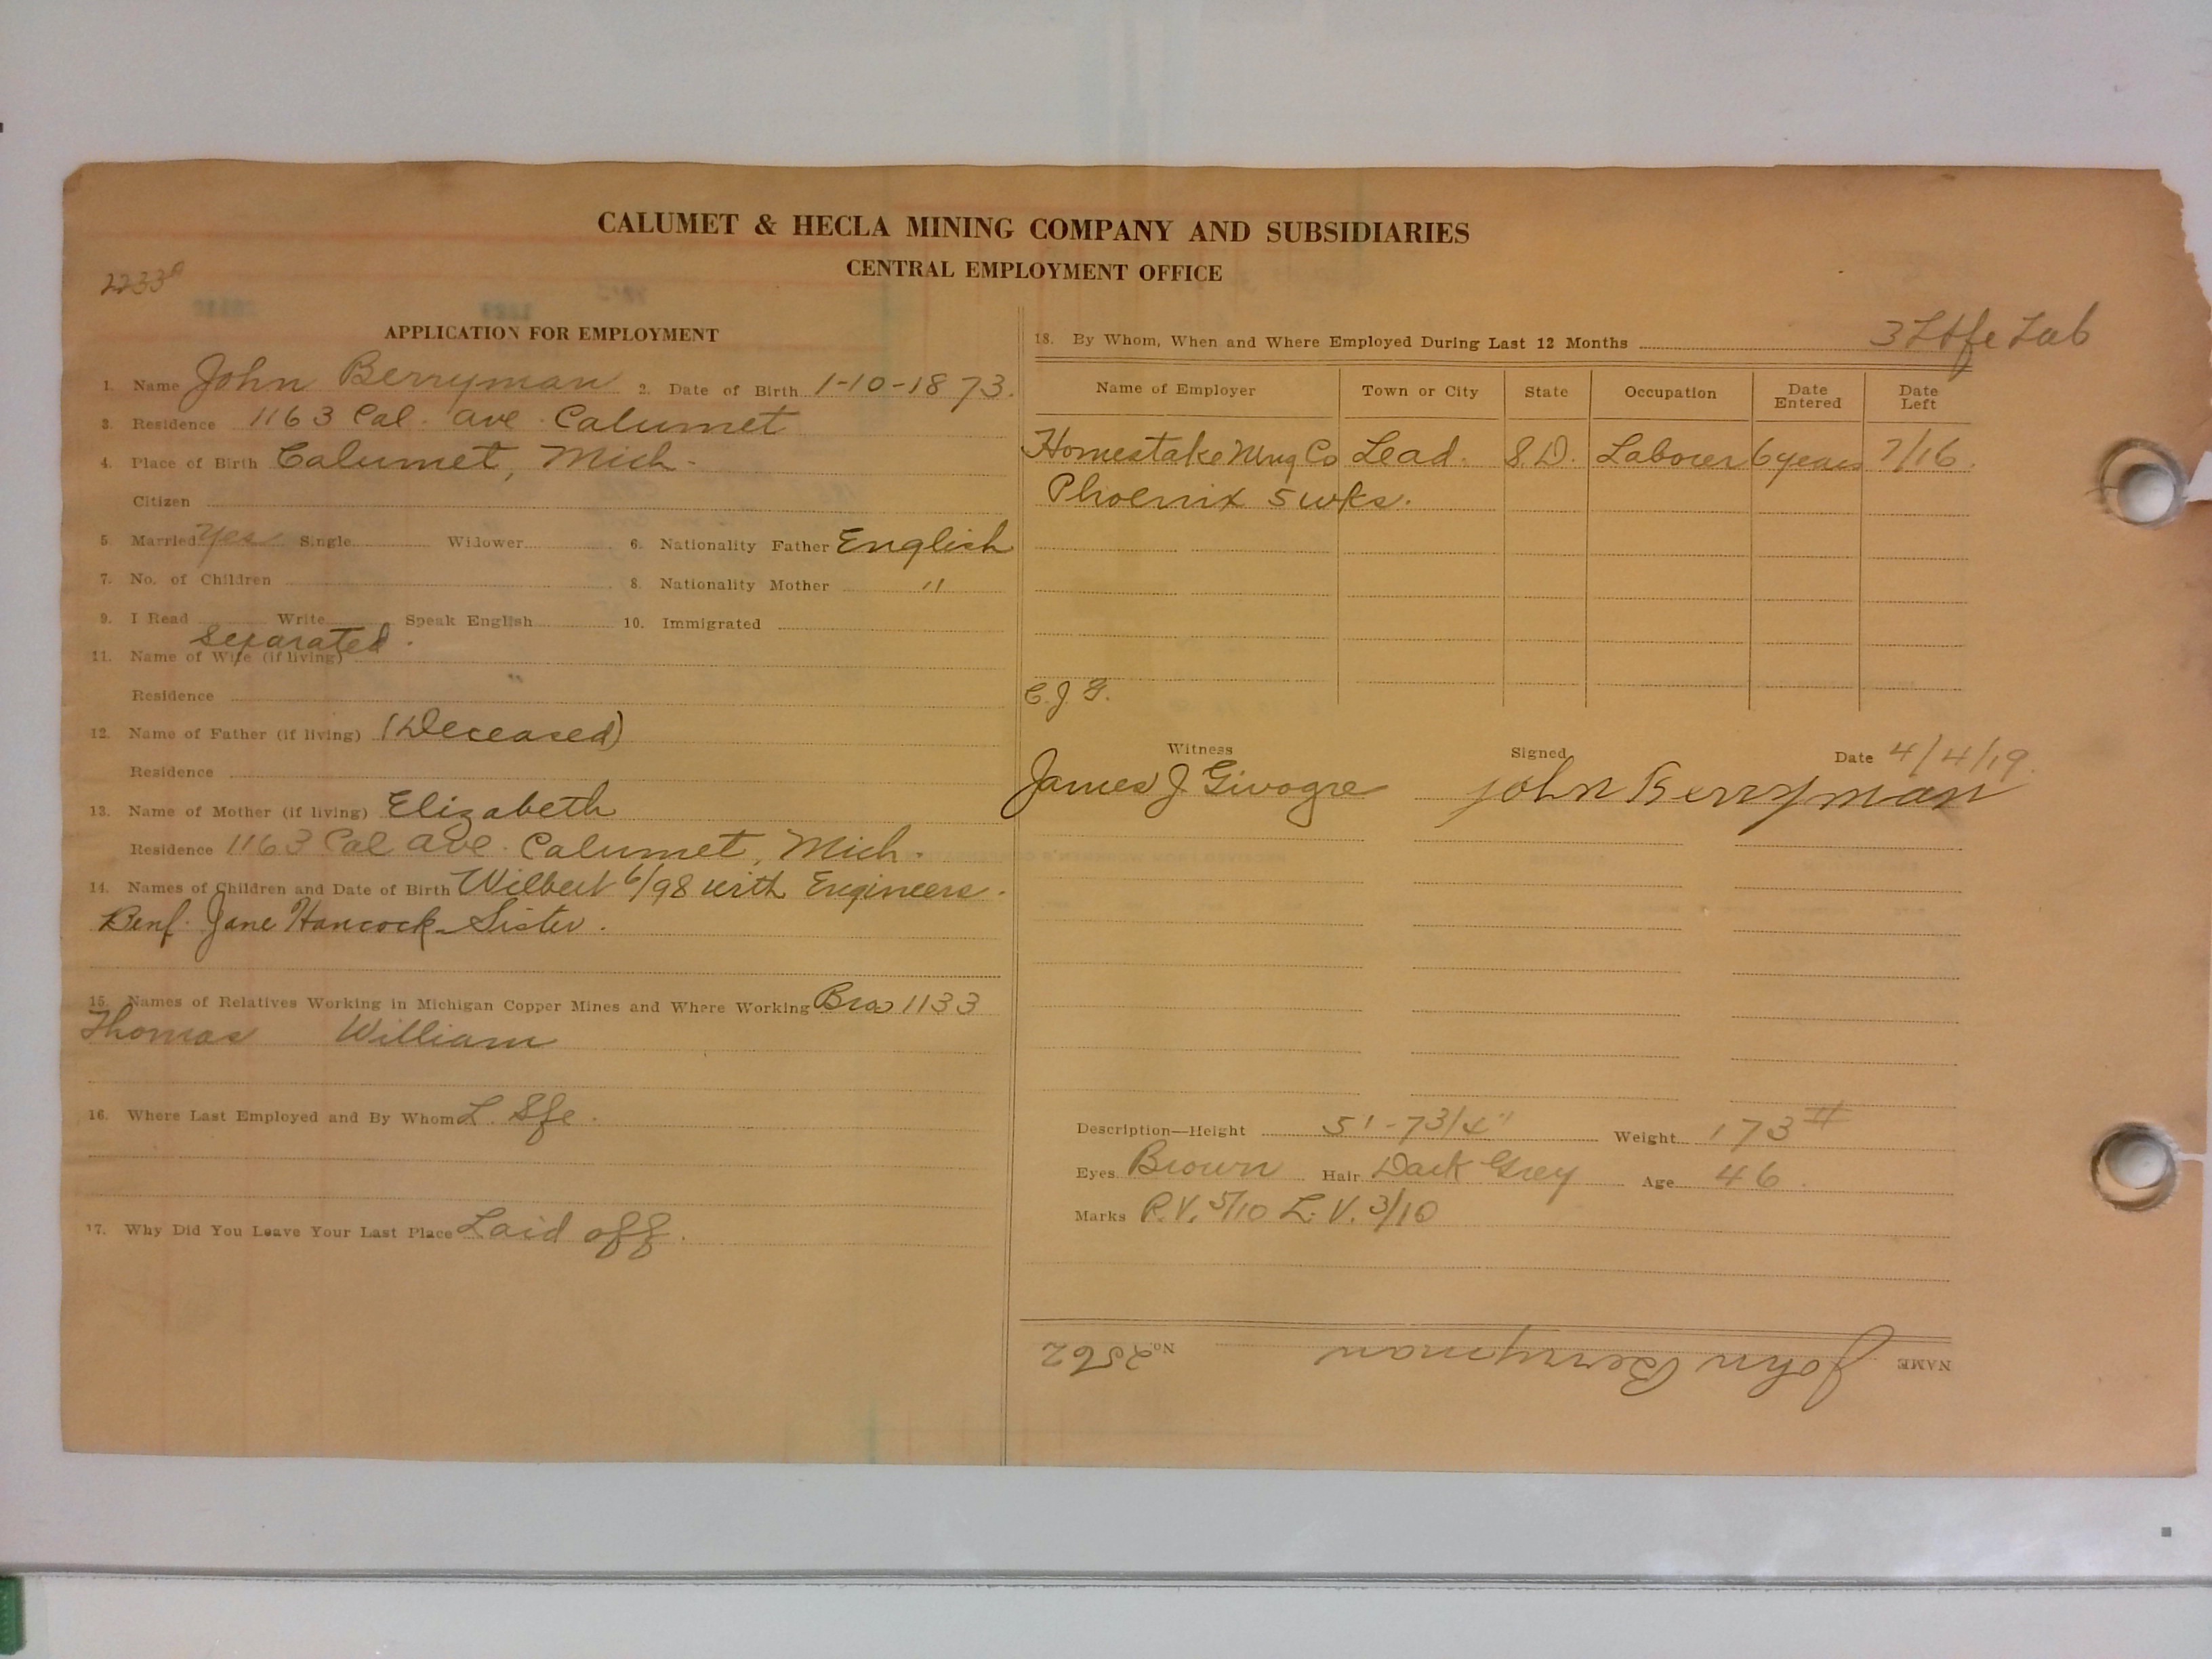 CALUMET & HECLA MINING COMPANY AND SUBSIDIARIES
CENTRAL EMPLOYMENT OFFICE
2233
APPLICATION FOR EMPLOYMENT
1. Name John Berryman 2. Date of Birth 1-10-1873.
3. Residence 1163 Cal. ave. Calumet
4. Place of Birth Calumet, Mich.
Citizen
5. Married yes Single Widower 6. Nationality Father English
7. No. of Children 8. Nationality Mother "
9. I Read Write Speak English 10. Immigrated
separated.
11. Name of Wife (if living)
Residence "
12. Name of Father (if living) (Deceased)
Residence
13. Name of Mother (if living) Elizabeth
Residence 1163 Cal ave. Calumet, Mich.
14. Names of Children and Date of Birth Wilbert 6/98 with Engineers.
Benf. Jane Hancock - Sister.
15. Names of Relatives Working in Michigan Copper Mines and Where Working Bro 1133
Thomas William
16. Where Last Employed and By Whom L. Sfe.
17. Why Did You Leave Your Last Place Laid off.
18. By Whom, When and Where Employed During Last 12 Months 3 Lab
Name of Employer Town or City State Occupation Date Entered Date Left
Homestake Mng Co Lead. S.D. Laborer 6 years 7/16.
Phoenix 5 wks.
C.J.G.
Witness Signed Date 4/4/19.
James J Givogre John Berryman
Description—Height 5'-7 3/4" Weight 173 #
Eyes Brown Hair Dark Grey Age 46.
Marks R.V. 5/10 L.V. 3/10
NAME John Berryman No. 2562